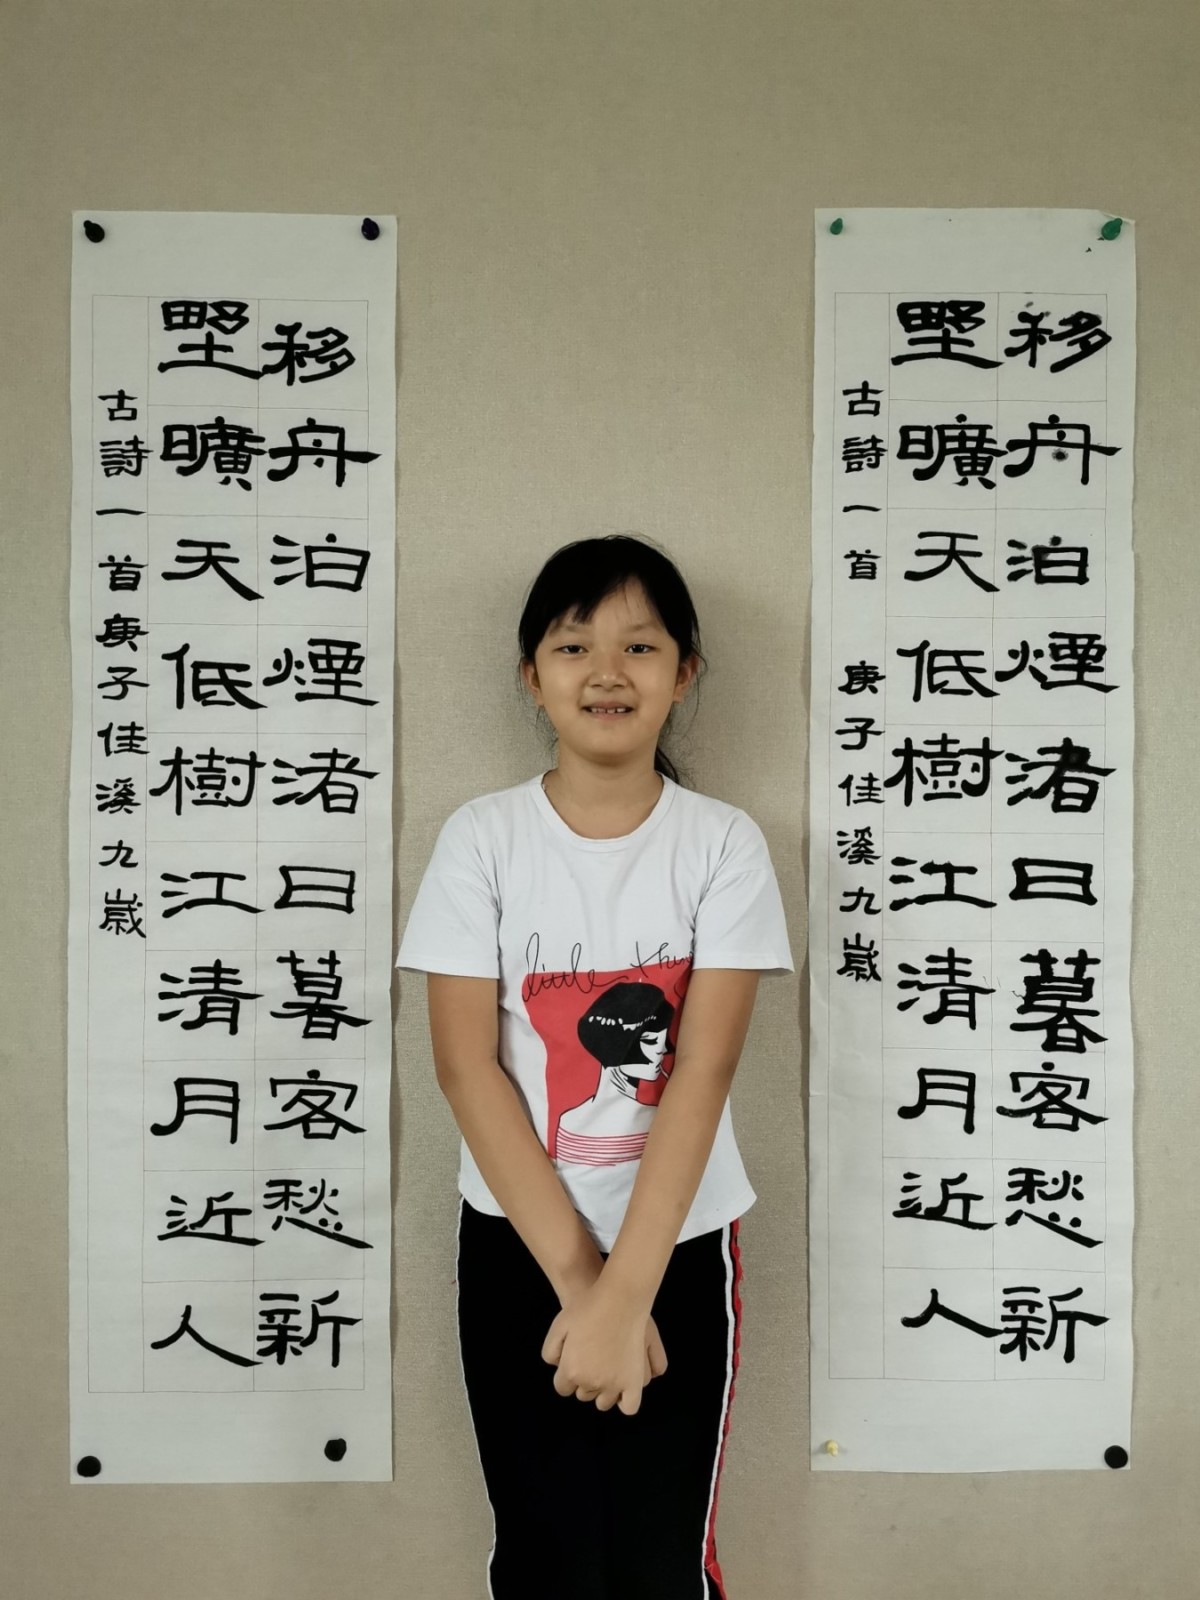 移舟泊煙渚日暮客愁新
野曠天低樹江清月近人
古詩一首 庚子佳溪九歲
移舟泊煙渚日暮客愁新
野曠天低樹江清月近人
古詩一首庚子佳溪九歲
little thin